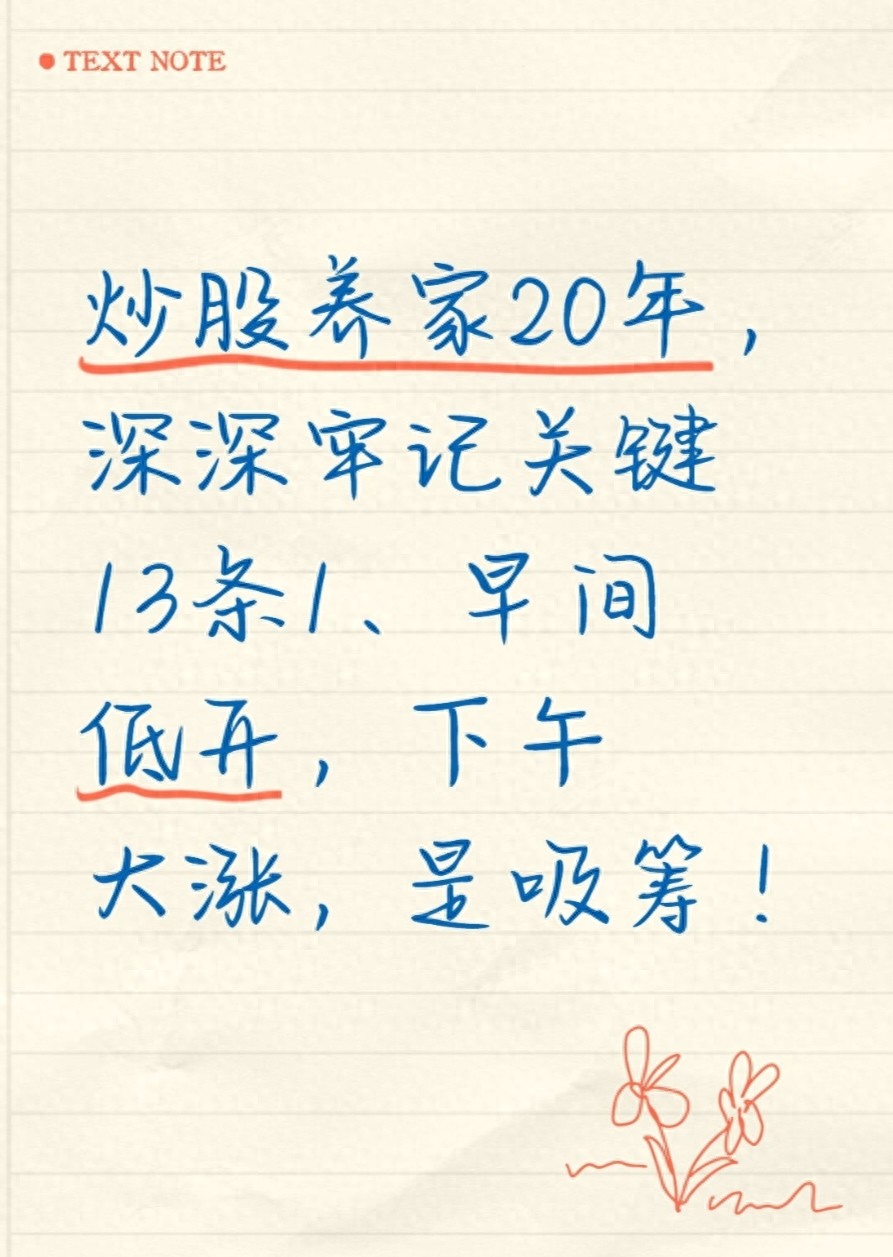 TEXT NOTE
炒股养家20年，
深深牢记关键
13条1、早间
低开，下午
大涨，是吸筹！